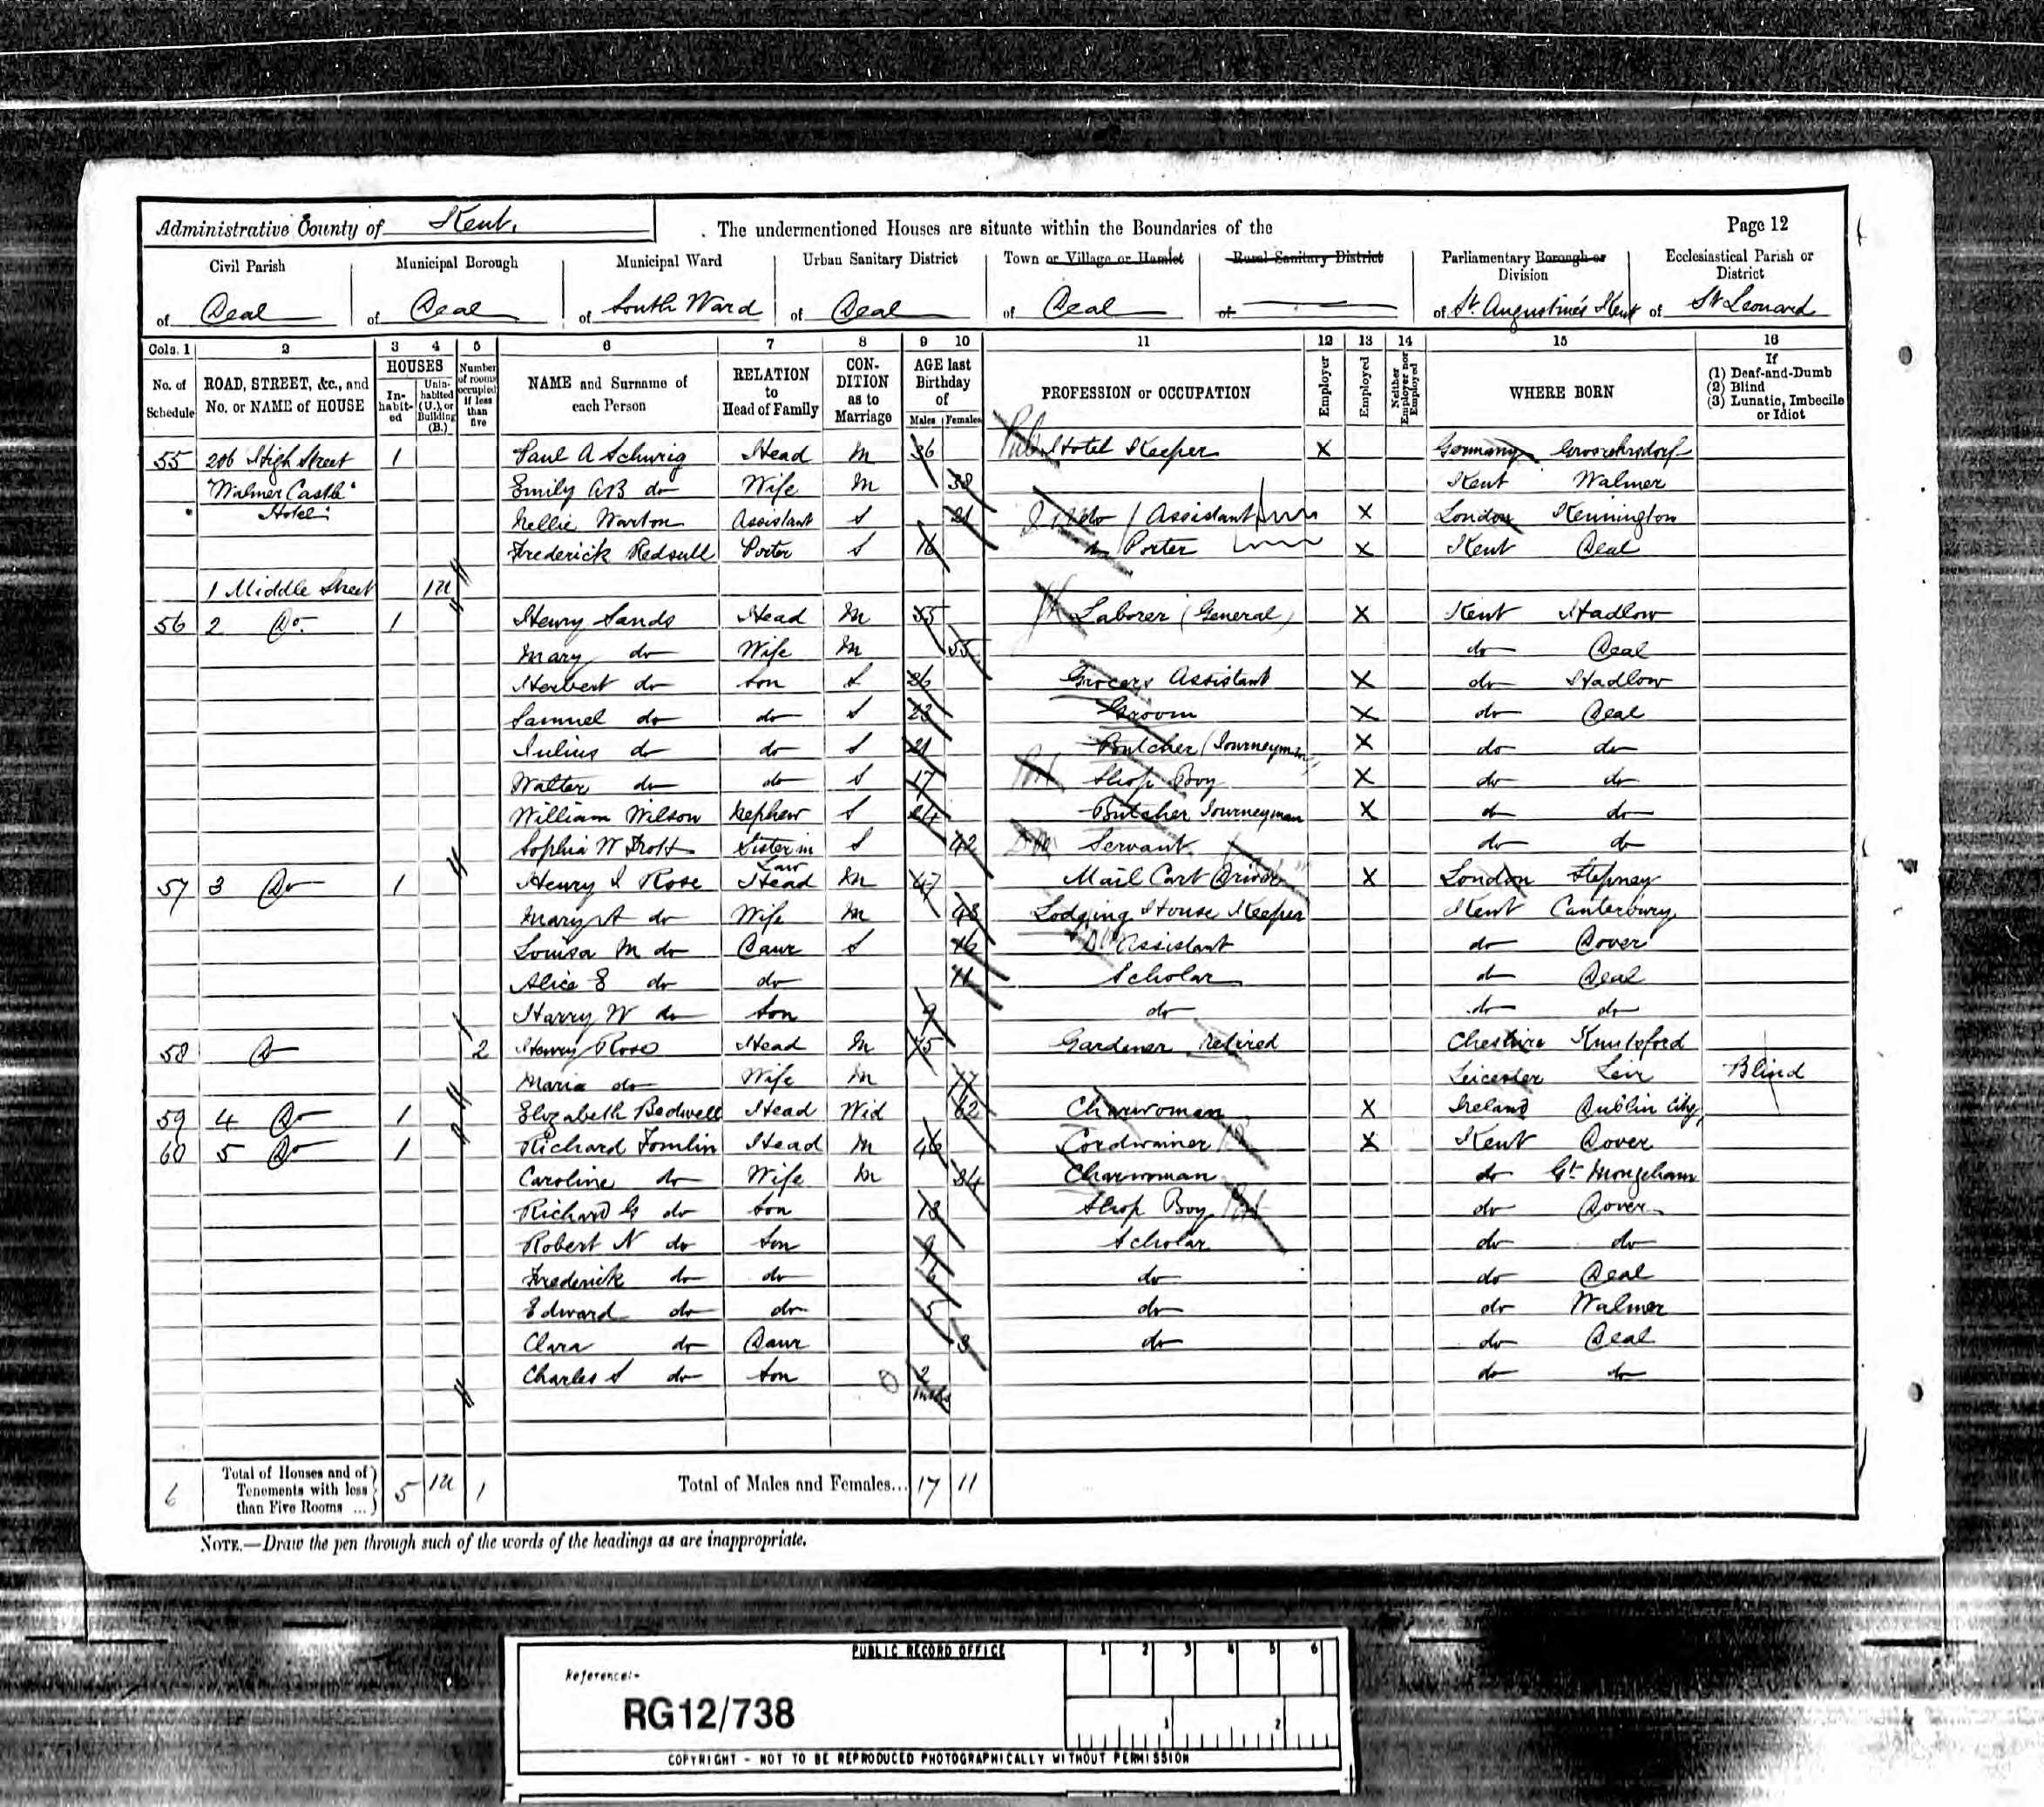 Administrative County of Kent. The undermentioned Houses are situate within the Boundaries of the Page 12
Civil Parish Municipal Borough Municipal Ward Urban Sanitary District Town or Village or Hamlet Rural Sanitary District Parliamentary Borough or Division Ecclesiastical Parish or District
of Deal of Deal of South Ward of Deal of Deal of of St. Augustine's Kent of St Leonard
Cols. 1 2 3 4 5 6 7 8 9 10 11 12 13 14 15 16
No. of Schedule ROAD, STREET, &c., and No. or NAME of HOUSE HOUSES In-habit-ed Unin-habited (U.), or Building (B.) Number of rooms occupied if less than five NAME and Surname of each Person RELATION to Head of Family CON-DITION as to Marriage AGE last Birthday of Males Females PROFESSION or OCCUPATION Employer Employed Neither Employer nor Employed WHERE BORN If (1) Deaf-and-Dumb (2) Blind (3) Lunatic, Imbecile or Idiot
55 206 High Street 1 Paul A Schwig Head M 36 Hotel Keeper X Germany
"Walmer Castle" Emily AB do Wife M 38 Kent Walmer
Hotel Nellie Warton Assistant S 21 do Assistant X London Kennington
Frederick Redsull Porter S 16 do Porter X Kent Deal
1 Middle Street 1U
56 2 Do 1 Henry Sands Head M 55 Laborer (General) X Kent Hadlow
Mary do Wife M 55 do Deal
Herbert do Son S 26 Grocers Assistant X do Hadlow
Samuel do do S 23 Groom X do Deal
Julius do do S 21 Butcher (Journeyman) X do do
Walter do do S 17 Shop Boy X do do
William Wilson Nephew S 24 Butcher Journeyman X do do
Sophia W Trott Sister in Law S 42 Servant do do
57 3 Do 1 Henry J Rose Head M 47 Mail Cart Driver X London Stepney
Mary A do Wife M 48 Lodging House Keeper Kent Canterbury
Louisa M do Daur S 16 Assistant do Dover
Alice E do do 11 Scholar do Deal
Harry W do Son 9 do do do
58 Do 2 Henry Rose Head M 75 Gardener retired Cheshire Knutsford
Maria do Wife M 77 Leicester Leir Blind
59 4 Do 1 Elizabeth Bedwell Head Wid 62 Charwoman X Ireland Dublin City
60 5 Do 1 Richard Tomlin Head M 46 Cordwainer X Kent Dover
Caroline do Wife M 34 Charwoman do Gt Mongeham
Richard G do Son 13 Shop Boy do Dover
Robert N do Son 9 Scholar do do
Frederick do do 6 do do Deal
Edward do do 5 do do Walmer
Clara do Daur 3 do do Deal
Charles S do Son 2 mths do do
6 Total of Houses and of Tenements with less than Five Rooms ... 5 1U 1 Total of Males and Females... 17 11
NOTE.—Draw the pen through such of the words of the headings as are inappropriate.
PUBLIC RECORD OFFICE
1 2 3 4 5 6
Reference:-
RG12/738
1 2
COPYRIGHT - NOT TO BE REPRODUCED PHOTOGRAPHICALLY WITHOUT PERMISSION